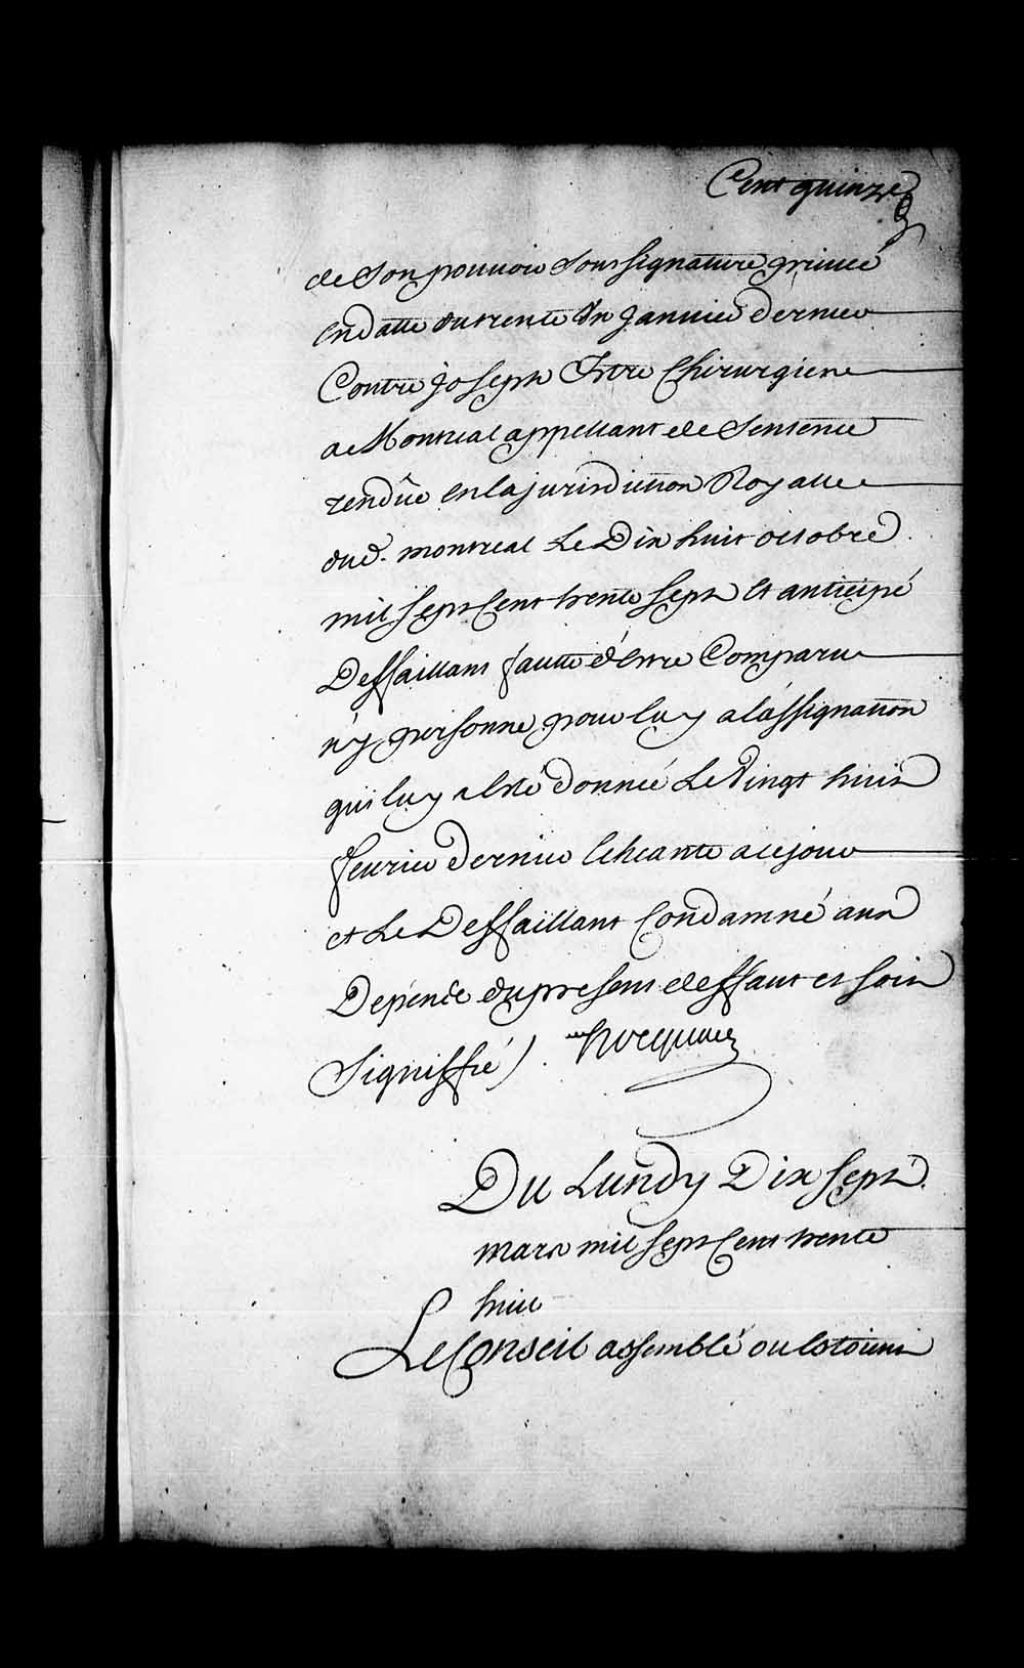 Cent quinze
de Son pouuoir Sous signature priueé
En datte du trente Un Januier dernier
Contre Joseph Istre Chirurgien
a Montreal appellant de Sentence
rendûe en la jurisdiction Royalle
dud. montreal Le Dix huit octobre
mil sept Cent trente sept et anticipé
Deffaillant fautte d'Etre Comparu
n'y personne pour luy a lássignation
qui luy a Eté donneé Le Vingt huit
feurier dernier Echeante a ce jour
et Le Deffaillant Condamné aux
Depénds du present deffaut et soit
Signiffié) . Hocquart
Du Lundy Dix sept
mars mil sept Cent trente
huit
Le Conseil assemblé ou Estoient